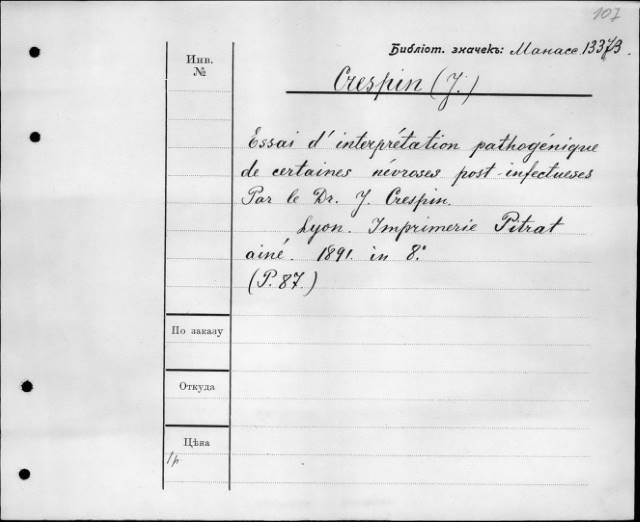 107
Библіот. значекъ: Манасе. 13373.
Инв.
№
Crespin (J.)
Essai d'interprétation pathogénique
de certaines névroses post-infectueses
Par le Dr. J. Crespin.
Lyon. Imprimerie Pitrat
ainé. 1891. in 8.°
(P. 87.)
По заказу
Откуда
Цѣна
1р